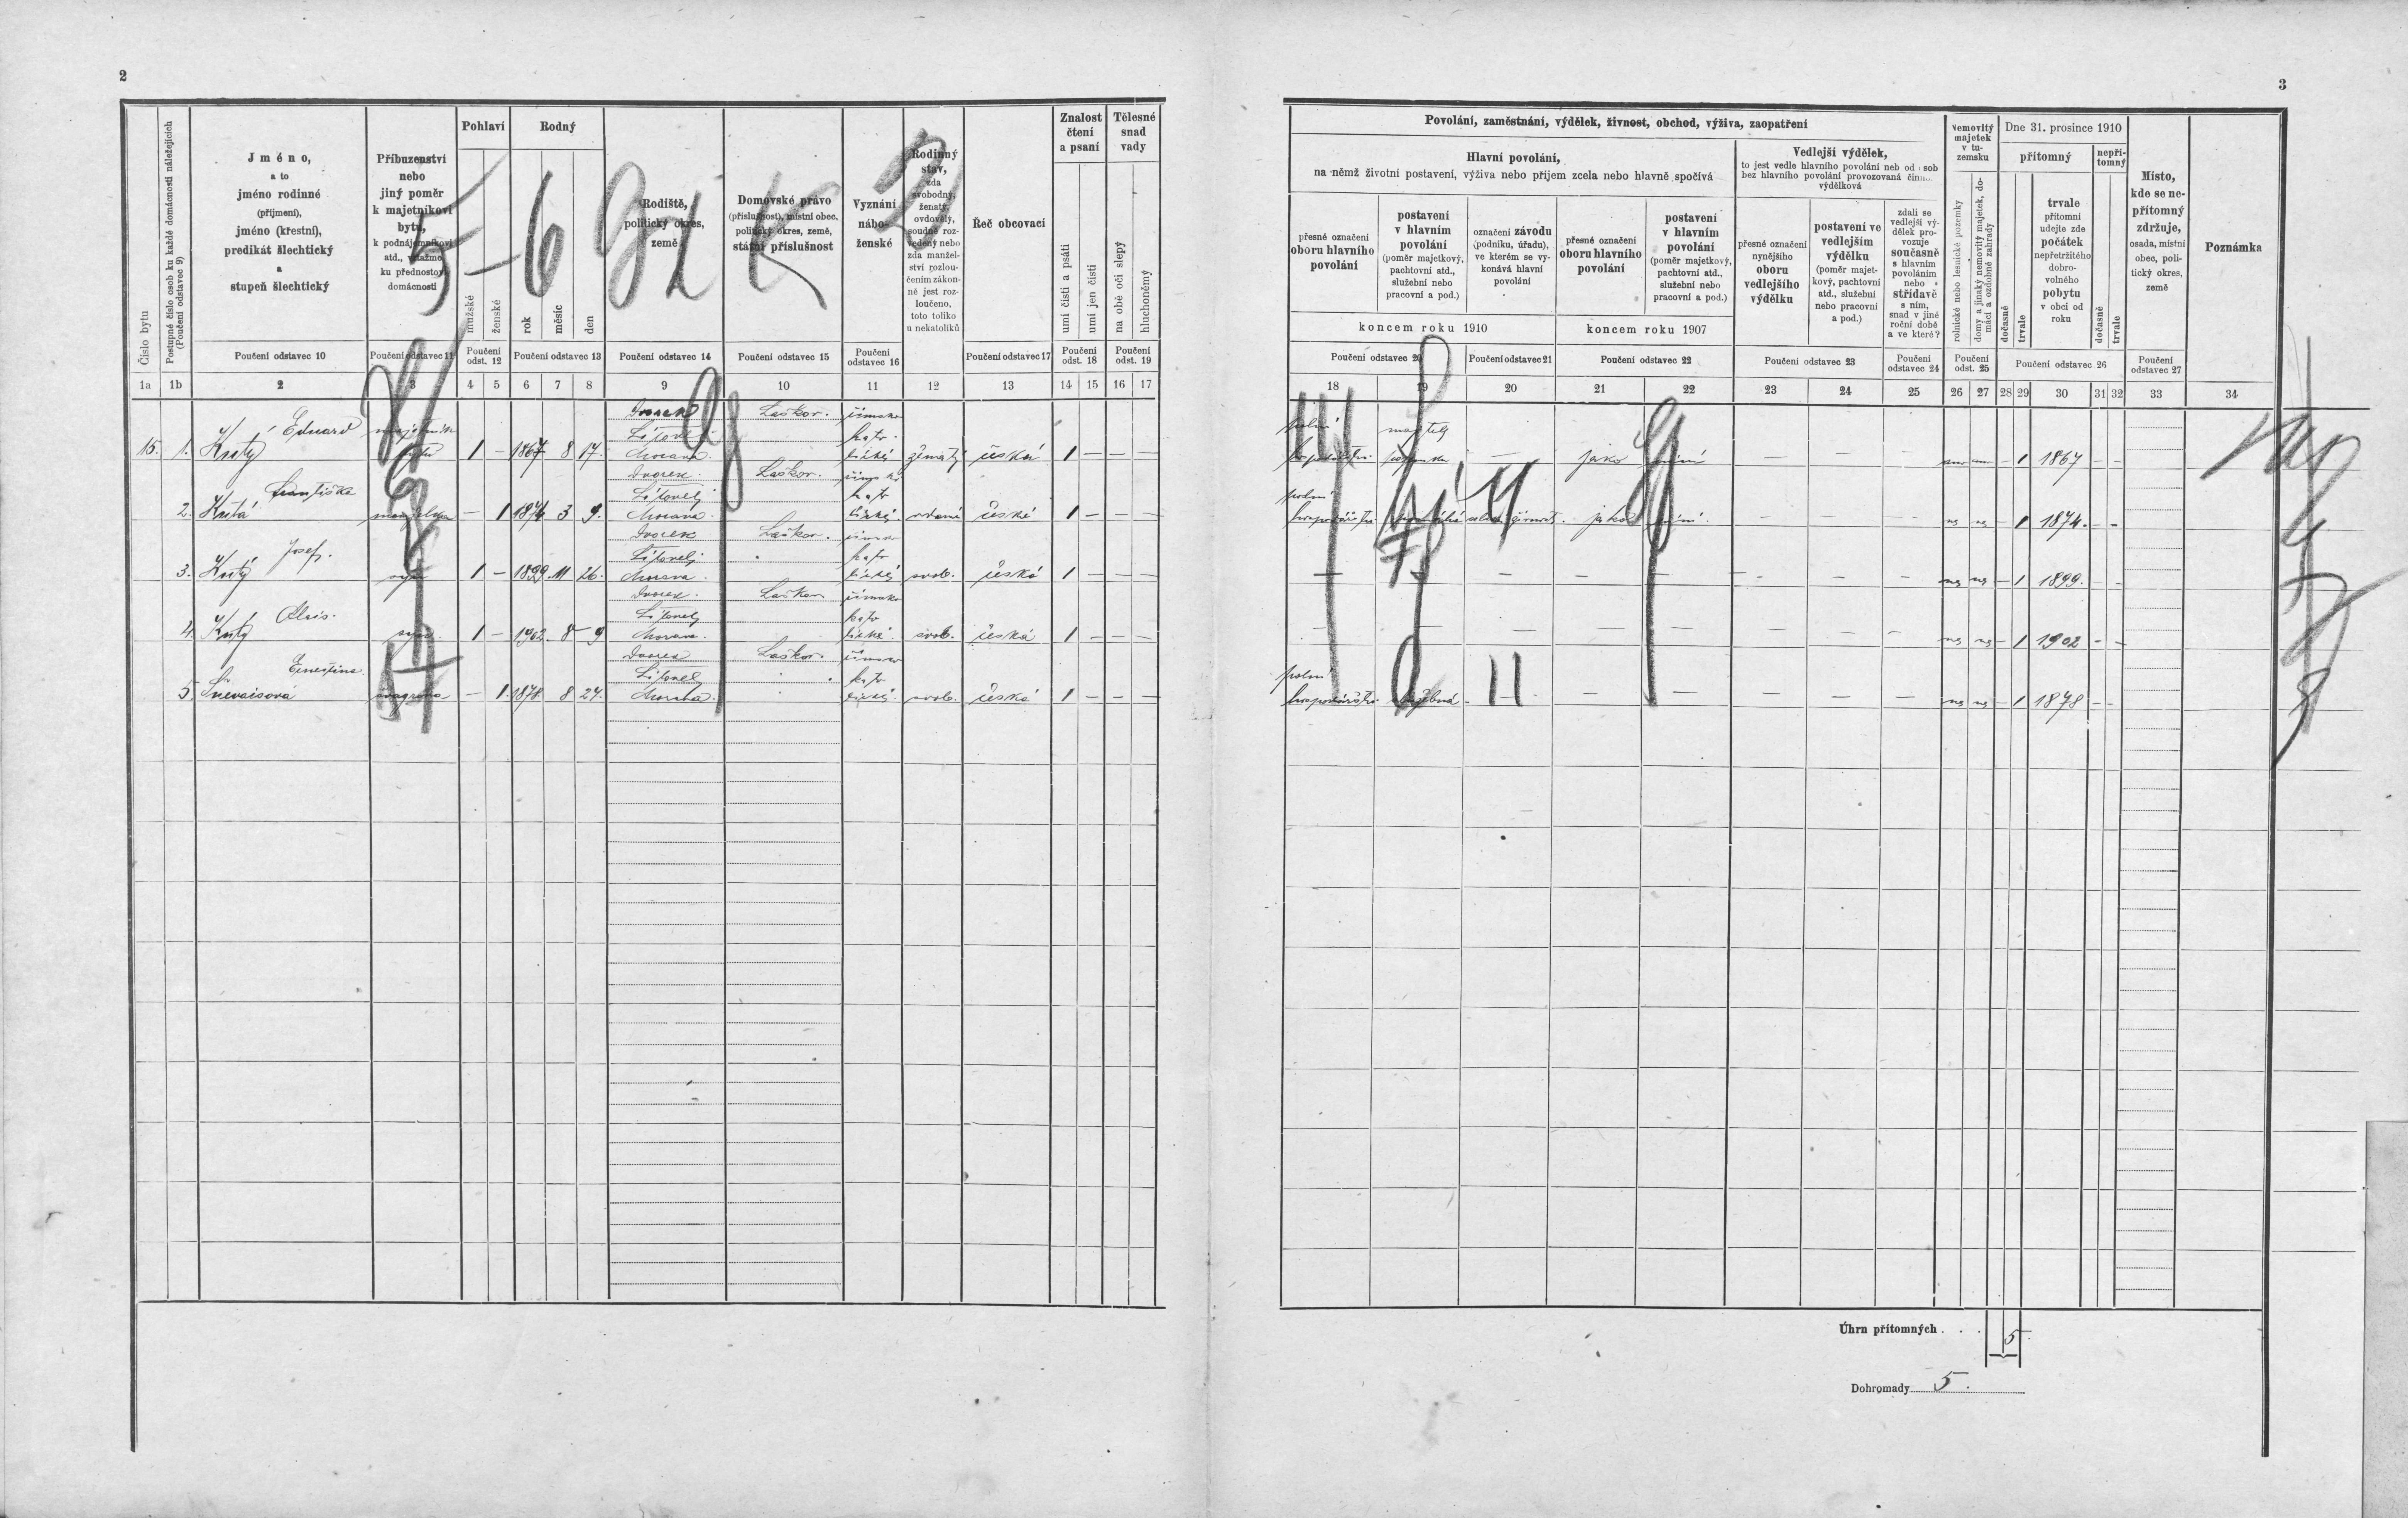 2
3
Číslo bytu
Postupné číslo osob ku každé domácnosti náležejících
(Poučení odstavec 9)
Jméno,
a to
jméno rodinné
(příjmení),
jméno (křestní),
predikát šlechtický
a
stupeň šlechtický
Příbuzenství
nebo
jiný poměr
k majetníkovi
bytu,
k podnájemníkovi
atd., vztažmo
ku přednostovi
domácnosti
Pohlaví
mužské
ženské
Rodný
rok
měsíc
den
Rodiště,
politický okres,
země
Domovské právo
(příslušnost), místní obec,
politický okres, země,
státní příslušnost
Vyznání
nábo-
ženské
Rodinný
stav,
zda
svobodný,
ženatý,
ovdovělý,
soudně roz-
vedený nebo
zda manžel-
ství rozlou-
čením zákon-
ně jest roz-
loučeno,
toto toliko
u nekatolíků
Řeč obcovací
Znalost
čtení
a psaní
umí čísti a psáti
umí jen čísti
Tělesné
snad
vady
na obě oči slepý
hluchoněmý
Poučení odstavec 10
Poučení odstavec 11
Poučení
odst. 12
Poučení odstavec 13
Poučení odstavec 14
Poučení odstavec 15
Poučení
odstavec 16
Poučení odstavec 17
Poučení
odst. 18
Poučení
odst. 19
1a 1b 2 3 4 5 6 7 8 9 10 11 12 13 14 15 16 17
Povolání, zaměstnání, výdělek, živnost, obchod, výživa, zaopatření
Hlavní povolání,
na němž životní postavení, výživa nebo příjem zcela nebo hlavně spočívá
Vedlejší výdělek,
to jest vedle hlavního povolání neb od osob
bez hlavního povolání provozovaná činn
výdělková
přesné označení
oboru hlavního
povolání
postavení
v hlavním
povolání
(poměr majetkový,
pachtovní atd.,
služební nebo
pracovní a pod.)
označení závodu
(podniku, úřadu),
ve kterém se vy-
konává hlavní
povolání
přesné označení
oboru hlavního
povolání
postavení
v hlavním
povolání
(poměr majetkový,
pachtovní atd.,
služební nebo
pracovní a pod.)
koncem roku 1910
koncem roku 1907
přesné označení
nynějšího
oboru
vedlejšího
výdělku
postavení ve
vedlejším
výdělku
(poměr majet-
kový, pachtovní
atd., služební
nebo pracovní
a pod.)
zdali se
vedlejší vý-
dělek pro-
vozuje
současně
s hlavním
povoláním
nebo
střídavě
s ním,
snad v jiné
roční době
a ve které?
Nemovitý
majetek
v tu-
zemsku
rolnické nebo lesnické pozemky
domy a jinaký nemovitý majetek, do-
mácí a ozdobné zahrady
Dne 31. prosince 1910
přítomný
nepří-
tomný
dočasně
trvale
trvale
přítomní
udejte zde
počátek
nepřetržitého
dobro-
volného
pobytu
v obci od
roku
dočasně
trvale
Místo,
kde se ne-
přítomný
zdržuje,
osada, místní
obec, poli-
tický okres,
země
Poznámka
Poučení odstavec 20
Poučení odstavec 21
Poučení odstavec 22
Poučení odstavec 23
Poučení
odstavec 24
Poučení
odst. 25
Poučení odstavec 26
Poučení
odstavec 27
18 19 20 21 22 23 24 25 26 27 28 29 30 31 32 33 34
15. 1. Kutý Eduard 1 – 1867 8 17. Dvorek Litovel Morava. Laškov. římsko katolické ženatý česká 1 – – –
polní hospodářství jako nyní – – – 1 1867 – –
2. Kutá Františka manželka – 1 1874 3 9. Dvorek. Litovel Morava. Laškov. vdaná česká 1 – – –
polní hospodářství jako nyní. – – – ne ne – 1 1874. – –
3. Kutý Josef. syn 1 – 1899. 11 26. Dvorek Litovel Morava. Laškov. svob. česká 1 – – –
– – – – – – ne ne – 1 1899. – –
4. Kutý Alois. syn 1 – 1902. 8 9 Dvorek. Litovel Morava. Laškov římsko svob. česká 1 – – –
– – – – – – – ne ne – 1 1902 – –
5. Ernestina švagrová – 1. 1878. 8 27. Dvorek Litovel Morava. Laškov. svob. česká 1 – – –
polní hospodářství – – – – – – ne ne – 1 1878 – –
Úhrn přítomných . . . 5
Dohromady 5.